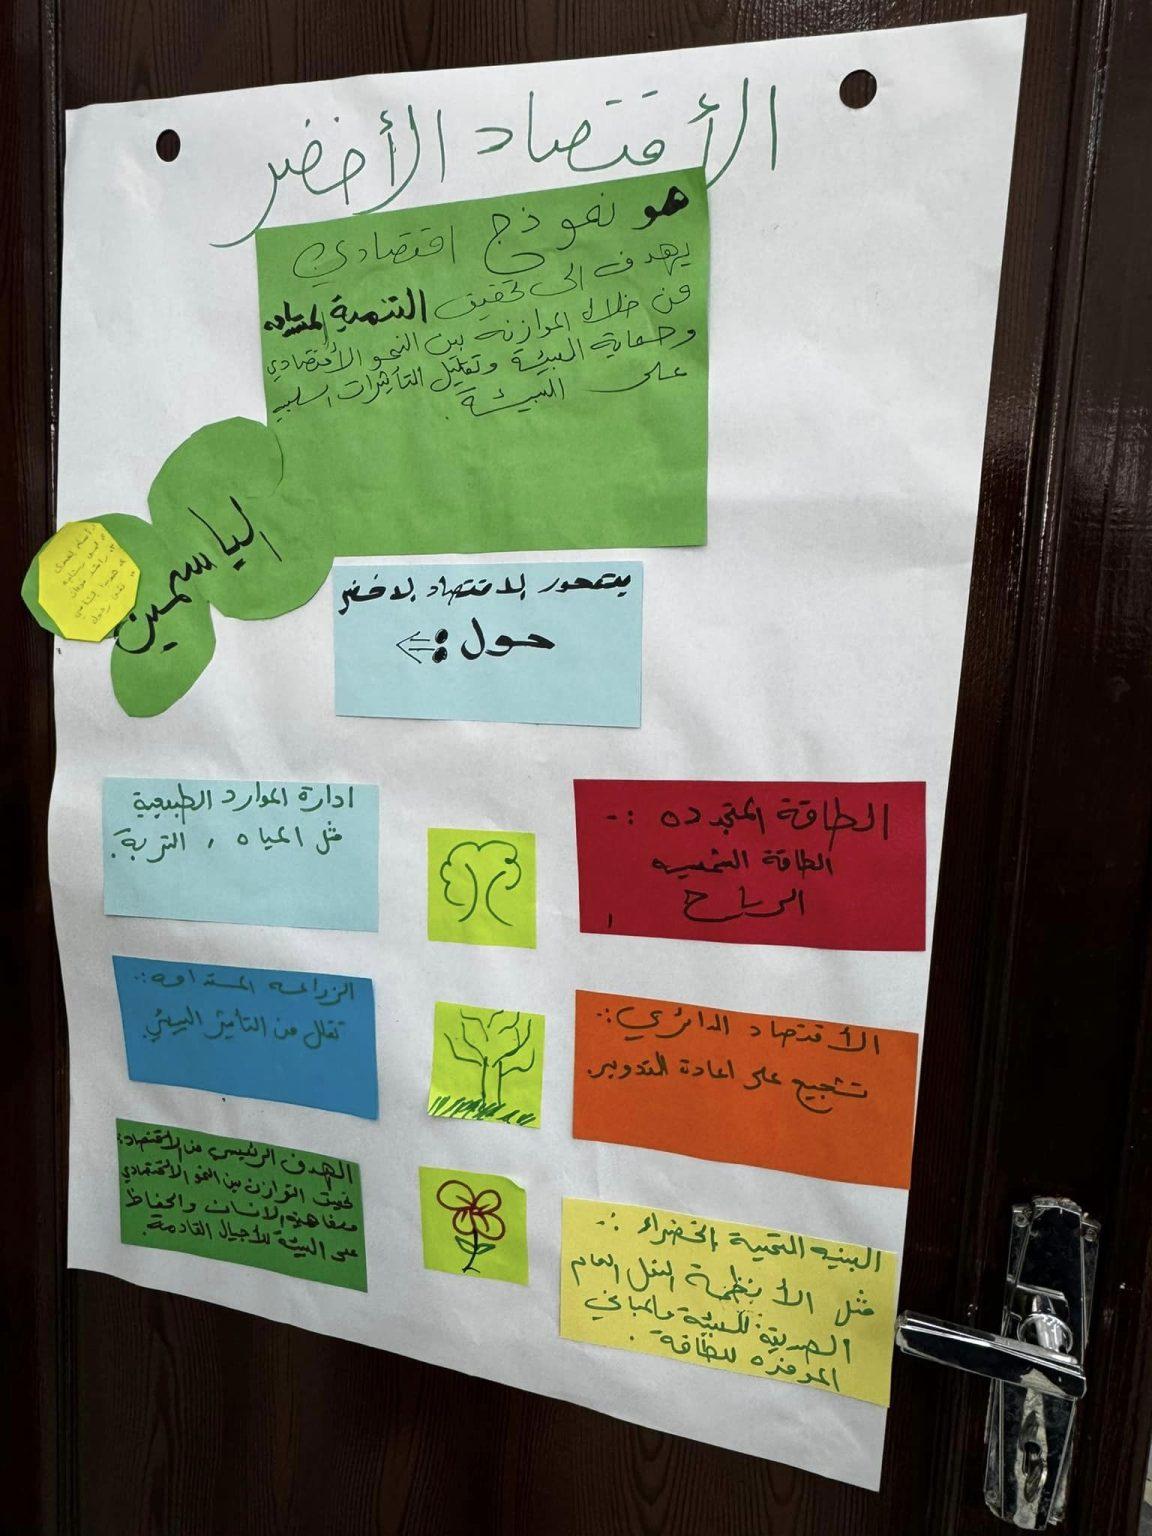 الأقتصاد الأخضر
هو نموذج اقتصادي
يهدف الى تحقيق التنمية المستدامه
من خلال الموازنه بين النمو الأقتصادي
وحماية البيئة وتقليل التأثيرات السلبيه
على البيئة.
الياسمين
يتمحور الاقتصاد الاخضر
حول :
الطاقة المتجدده :-
الطاقة الشمسيه
الرياح
ادارة الموارد الطبيعية
مثل المياه ، التربة.
الأقتصاد الدائري :-
تشجيع على اعادة التدوير.
الزراعه المستدامه :-
تقلل من التأثير البيئي.
البنيه التحتية الخضراء :-
مثل الأنظمة النقل العام
الصديقة للبيئة والمباني
الموفره للطاقة.
الهدف الرئيسي من الاقتصاد:
التوازن بين النمو الاقتصادي
ورفاهية الانسان والحفاظ
على البيئة للأجيال القادمة.